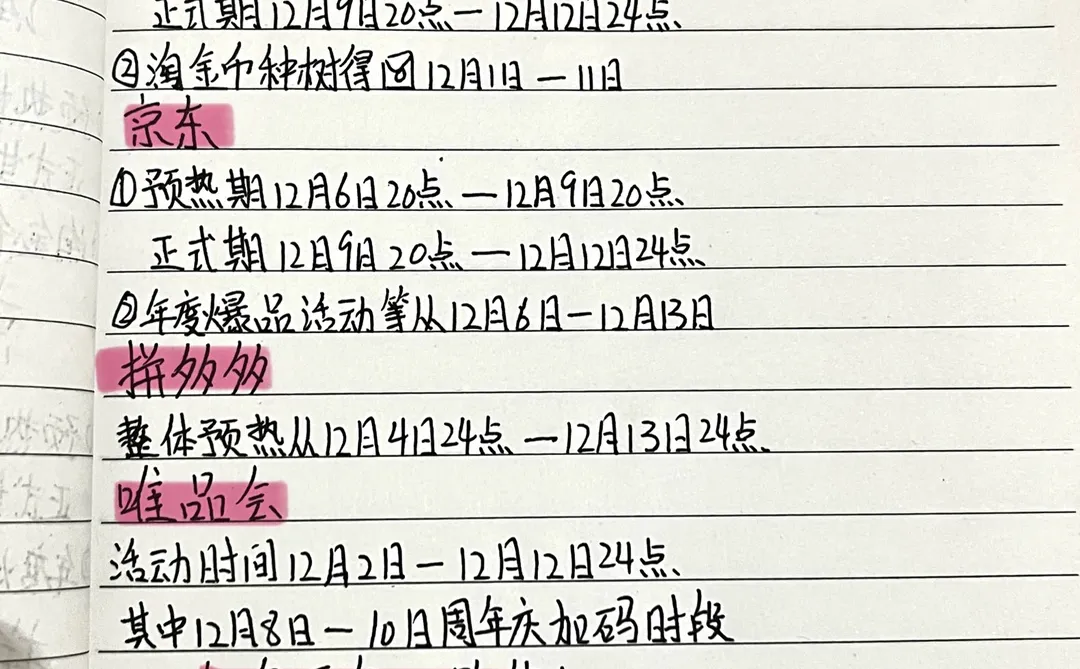 正式期12月9日20点—12月12日24点
②淘金币种树得回12月1日—11日
京东
①预热期12月6日20点—12月9日20点
正式期12月9日20点—12月12日24点
②年度爆品活动等从12月6日—12月13日
拼多多
整体预热从12月4日24点—12月13日24点
唯品会
活动时间12月2日—12月12日24点
其中12月8日—10日周年庆加码时段